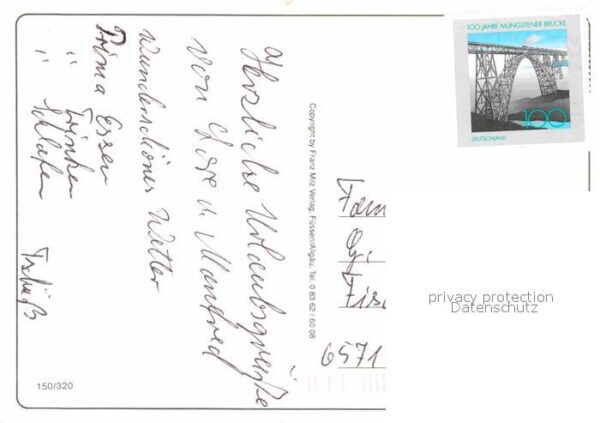 Herzliche Urlaubsgrüße
von Lore u. Manfred
Wunderschönes Wetter
Prima Essen
" Trinken
" Schlafen
Tschüß
Copyright by Franz Milz Verlag, Füssen/Allgäu, Tel. 0 83-62 / 60 08
150/320
100 JAHRE MÜNGSTENER BRÜCKE
100
DEUTSCHLAND
Fam
6571
privacy protection
Datenschutz